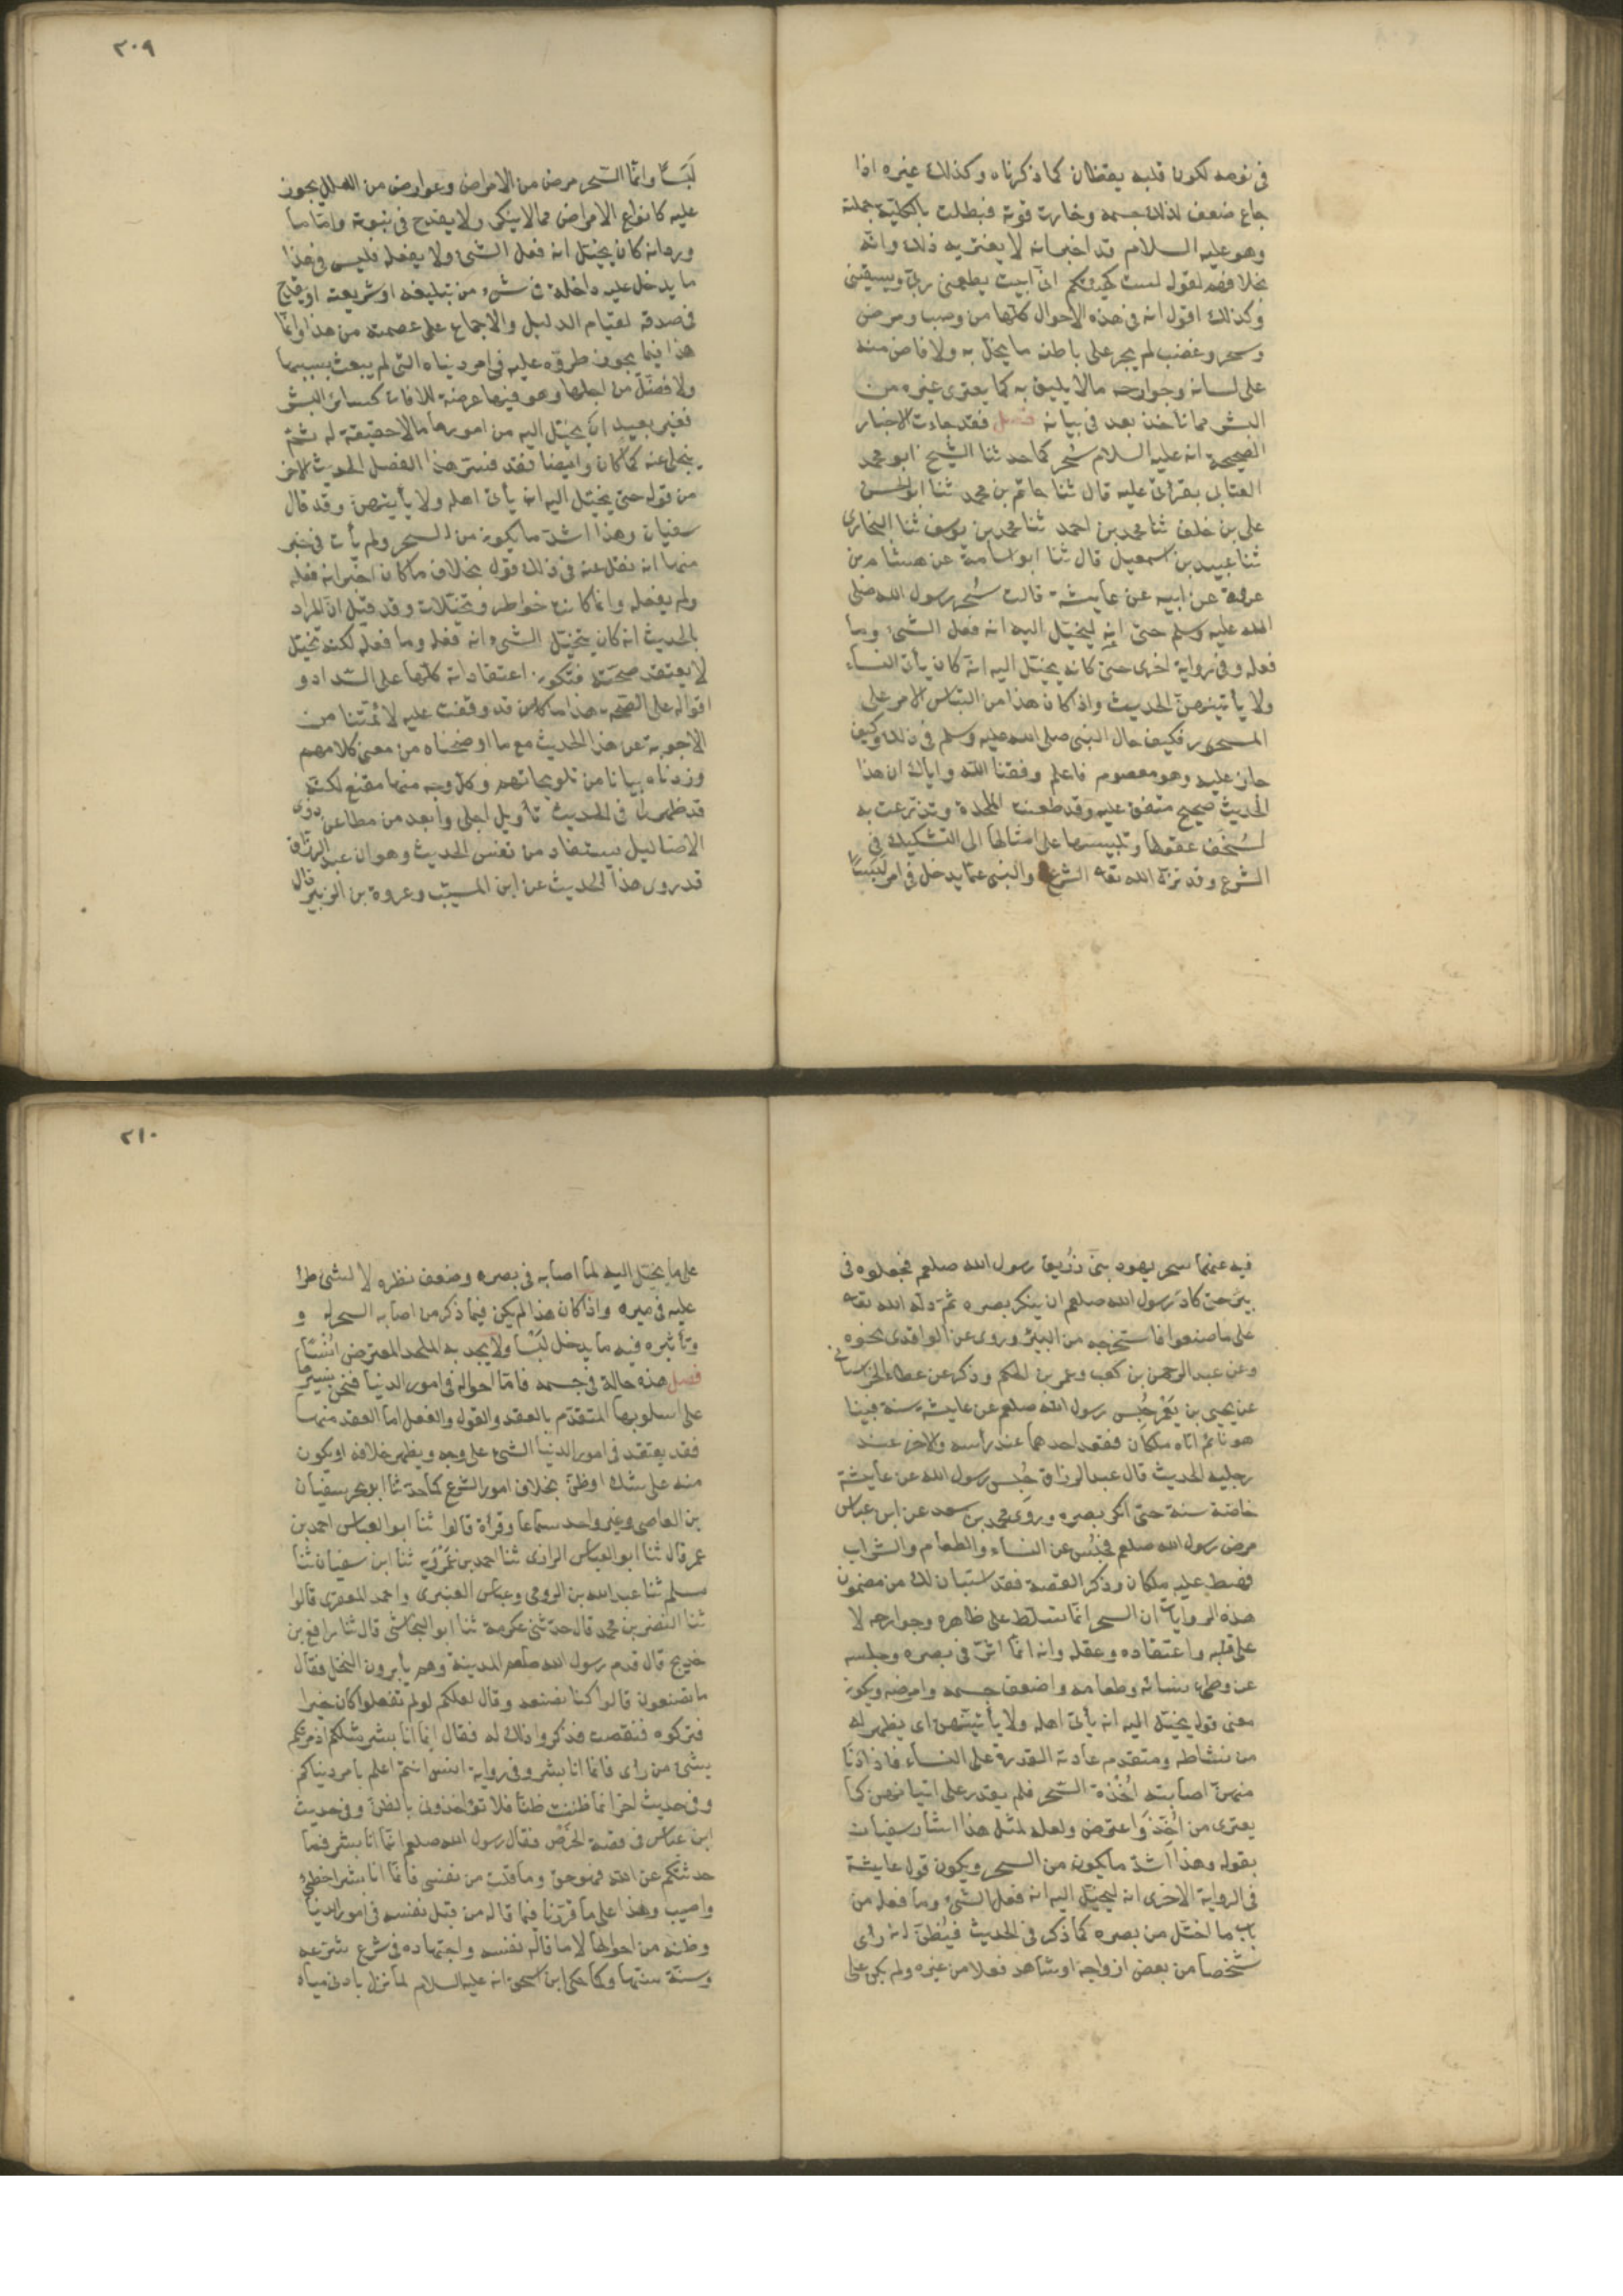 في نومه لكون قلبه يقظان كما ذكرناه وكذلك غيره اذا
جاع ضعف لذلك جسمه وخارت قوته فبطلت بالكلية جملته
وهو عليه السلام قد اخبر انه لا يعتريه ذلك وانه
بخلافهم لقوله لست كهيئتكم اني ابيت يطعمني ربي ويسقيني
وكذلك اقول انه في هذه الاحوال كلها من وصب ومرض
وسحر وغضب لم يجر على باطنه ما يخل به ولا فاض منه
على لسانه وجوارحه ما لا يليق به كما يعتري غيره من
البشر مما ناخذ بعد في بيانه فصل فقد جاءت الاخبار
الصحيحة انه عليه السلام سُحر كما حدثنا الشيخ ابو محمد
العتابي بقراتي عليه قال ثنا حاتم بن محمد ثنا ابو الحسن
علي بن خلف ثنا محمد بن احمد ثنا محمد بن يوسف ثنا البخاري
ثنا عبيد بن اسمعيل قال ثنا ابو اسامة عن هشام بن
عروة عن ابيه عن عايشة قالت سُحر رسول الله صلى
الله عليه وسلم حتى انه ليخيّل اليه انه فعل الشئ وما
فعله وفي رواية اخرى حتى كان يخيّل اليه انه كان يأتي النساء
ولا يأتيهنّ الحديث واذا كان هذا من التباس الامر على
المسحور فكيف حال النبي صلى الله عليه وسلم في ذلك وكيف
جاز عليه وهو معصوم فاعلم وفقنا الله واياك ان هذا
الحديث صحيح متفق عليه وقد طعنت الملحدة وتذرعت به
لسُخف عقولها وتلبيسها على امثالها الى التشكيك في
الشرع وقد نزه الله تعه الشرع والنبي عما يدخل في امره لَبسًا
٢٠٩
لَبَسًا وانمّا السّحر مرض من الامراض وعوارض من العلل يجوز
عليه كانواع الامراض مما لا ينكر ولا يقدح في نبوته وامّا ما
ورد انه كان يخيّل انه فعل الشئ ولا يفعله فليس في هذا
ما يدخل عليه داخلة في شئ من تبليغه او شريعته او يقدح
في صدقه لقيام الدليل والاجماع على عصمته من هذا وانمّا
هذا فيما يجوز طروّه عليه في امر دنياه التي لم يبعث بسببها
ولا فضّل من اجلها وهو فيها عرضة للافات كسائر البشر
فغير بعيد ان يخيّل اليه من امورها ما لا حقيقة له ثمّ
ينجلي عنه كما كان وايضا فقد فسّر هذا الفصل الحديث الاخر
من قوله حتى يخيّل اليه انه يأتي اهله ولا يأتيهن وقد قال
سفيان وهذا اشدّ ما يكون من السحر ولم يأت في خبر
منها انه نقل عنه في ذلك قول بخلاف ما كان اخبر انه فعله
ولم يفعله وانما كانت خواطر وتخيّلات وقد قيل ان المراد
بالحديث انه كان يتخيّل الشئ انه فعله وما فعله لكنه تخيّل
لا يعتقد صحّته فتكون اعتقاداته كلها على السّداد و
اقواله على الصحة هذا ما وقفت عليه لائمّتنا من
الاجوبة عن هذا الحديث مع ما اوضحناه من معنى كلامهم
وزدناه بيانا من تلويحاتهم وكل وجه منها مقنع لكنّه
قد ظهر لي في الحديث تأويل اجلى وابعد من مطاعن ذوي
الاضاليل يستفاد من نفس الحديث وهو ان عبد الرزّاق
قد روى هذا الحديث عن ابن المسيّب وعروة بن الزبير قال
فيه عنهما سحر يهود بني زُريق رسول الله صلعم فجعلوه في
بئر حتى كاد رسول الله صلعم ان ينكر بصره ثم دلّه الله تعه
على ما صنعوا فاستخرجه من البئر وروى عن الواقدي نحوه
وعن عبد الرحمن بن كعب وعمر بن الحكم وذكر عن عطاء الخراساني
عن يحيى بن يَعْمر حُبس رسول الله صلعم عن عايشة سنة فبينا
هو نائم اتاه ملكان فقعد احدهما عند رأسه والاخر عند
رجليه الحديث قال عبد الرزاق حُبس رسول الله عن عايشة
خاصّة سنة حتى انكر بصره وروى محمد بن سعد عن ابن عباس
مرض رسول الله صلعم فحُبس عن النساء والطعام والشراب
فهبط عليه ملكان وذكر القصة فقد استبان لك من مضمون
هذه الروايات ان السحر انمّا تسلّط على ظاهره وجوارحه لا
على قلبه واعتقاده وعقله وانه انمّا اثّر في بصره وحبسه
عن وطئ نسائه وطعامه واضعف جسمه وامرضه ويكون
معنى قوله يخيّل اليه انه يأتي اهله ولا يأتيهن اي يظهر له
من نشاطه ومتقدم عادته القدرة على النساء فاذا دنا
منهنّ اصابته اُخذة السّحر فلم يقدر على اتيانهن كما
يعتري من اُخّذ واعترض ولعله لمثل هذا اشار سفيان
بقوله وهذا اشدّ ما يكون من السحر ويكون قول عايشة
في الرواية الاخرى انه ليخيّل اليه انه فعل الشئ وما فعله من
باب ما اختل من بصره كما ذكر في الحديث فيُظنّ انه رأى
شخصا من بعض ازواجه او شاهد فعلا من غيره ولم يكن على
٢١٠
على ما يخيّل اليه لما اصابه في بصره وضعف نظره لا لشئ طرأ
عليه في ميزه واذا كان هذا لم يكن فيما ذكر من اصابة السحر له و
وتأثيره فيه ما يدخل لَبْسا ولا يجد به الملحد المعترض انُسًا
فصل هذه حالة في جسمه فامّا احواله في امور الدنيا فنحن نسيرها
على اسلوبها المتقدّم بالعقد والقول والفعل اما العقد منها
فقد يعتقد في امور الدنيا الشئ على وجه ويظهر خلافه او يكون
منه على شك او ظنّ بخلاف امور الشرع كما حدثنا ابو بحر سفيان
بن العاصي وغير واحد سماعا وقرأة قالوا ثنا ابو العباس احمد بن
عمر قال ثنا ابو العباس الرازي ثنا احمد بن عَمْرُويه ثنا ابن سفيان ثنا
مسلم ثنا عبد الله بن الرومي وعباس العنبري واحمد المعقري قالوا
ثنا النضر بن محمد قال حدثني عكرمة ثنا ابو النجاشي قال ثنا رافع بن
خديج قال قدم رسول الله صلعم المدينة وهم يأبرون النخل فقال
ما تصنعون قالوا كنا نصنعه وقال لعلكم لو لم تفعلوا كان خيرا
فتركوه فنقصت فذكروا ذلك له فقال انما انا بشر مثلكم اذا امرتكم
بشئ من رأي فانما انا بشر وفي رواية انس انتم اعلم بامر دنياكم
وفي حديث اخر انما ظننت ظنّا فلا تؤاخذوني بالظن وفي حديث
ابن عباس في قصة الخرص فقال رسول الله صلعم انمّا انا بشر فما
حدثتكم عن الله فهو حق وما قلت من نفسي فانمّا انا بشر اخطئ
واصيب وهذا على ما قررنا فيما قاله من قبل نفسه في امور الدنيا
وظنّه من احوالها لا ما قاله نفسه واجتهاده في شرع شرّعه
وسنّة سنّها وكما حكى ابن اسحق انه عليه السلام لما نزل بادنى مياه